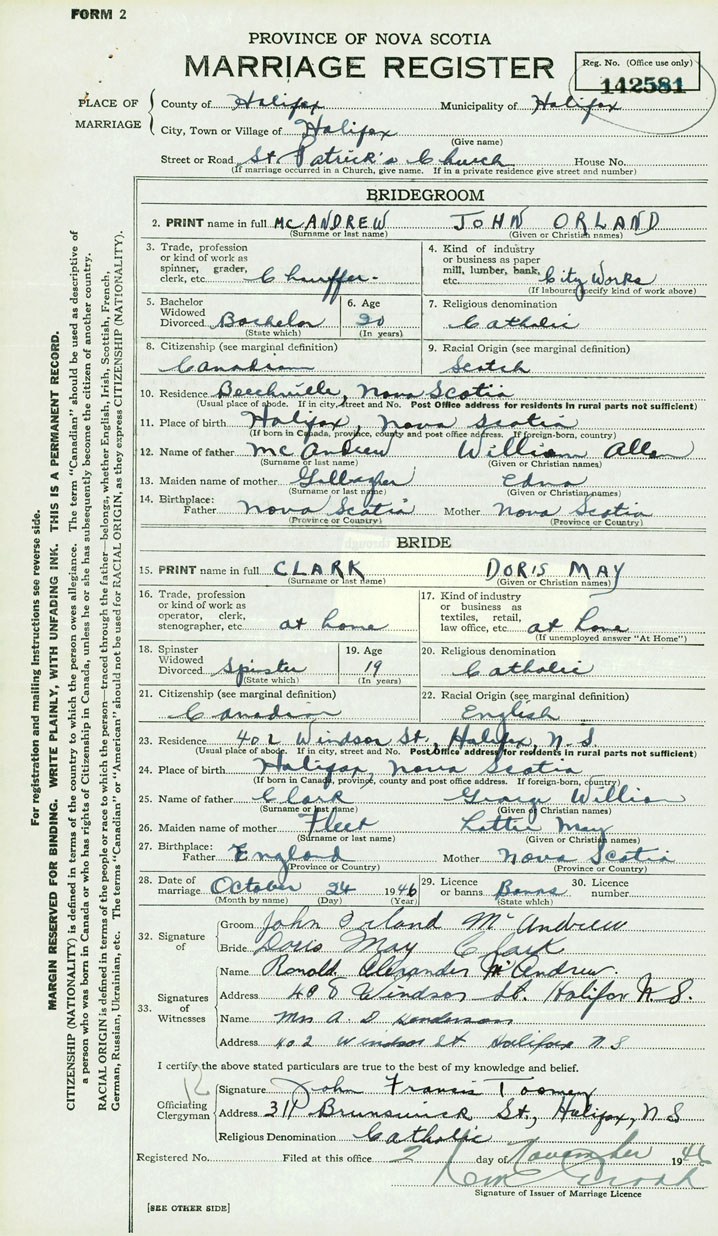 FORM 2
PROVINCE OF NOVA SCOTIA
MARRIAGE REGISTER
Reg. No. (Office use only)
142581
PLACE OF MARRIAGE
County of Halifax Municipality of Halifax
City, Town or Village of Halifax
(Give name)
Street or Road St Patrick's Church House No.
(If marriage occurred in a Church, give name. If in a private residence give street and number)
BRIDEGROOM
2. PRINT name in full McANDREW JOHN ORLAND
(Surname or last name) (Given or Christian names)
3. Trade, profession or kind of work as spinner, grader, clerk, etc. Chauffer.
4. Kind of industry or business as paper mill, lumber, bank, etc. City Works
(If labourer specify kind of work above)
5. Bachelor Widowed Divorced Bachelor
(State which)
6. Age 20
(In years)
7. Religious denomination
Catholic
8. Citizenship (see marginal definition)
Canadian
9. Racial Origin (see marginal definition)
Scotch
10. Residence Beechville, Nova Scotia
(Usual place of abode. If in city, street and No. Post Office address for residents in rural parts not sufficient)
11. Place of birth Halifax, Nova Scotia
(If born in Canada, province, county and post office address. If foreign-born, country)
12. Name of father McAndrew William Allen
(Surname or last name) (Given or Christian names)
13. Maiden name of mother Gallagher Edna
(Surname or last name) (Given or Christian names)
14. Birthplace:
Father Nova Scotia Mother Nova Scotia
(Province or Country) (Province or Country)
BRIDE
15. PRINT name in full CLARK DORIS MAY
(Surname or last name) (Given or Christian names)
16. Trade, profession or kind of work as operator, clerk, stenographer, etc. at home
17. Kind of industry or business as textiles, retail, law office, etc. at home
(If unemployed answer "At Home")
18. Spinster Widowed Divorced Spinster
(State which)
19. Age 19
(In years)
20. Religious denomination
Catholic
21. Citizenship (see marginal definition)
Canadian
22. Racial Origin (see marginal definition)
English
23. Residence 402 Windsor St., Halifax, N.S.
(Usual place of abode. If in city, street and No. Post Office address for residents in rural parts not sufficient)
24. Place of birth Halifax, Nova Scotia
(If born in Canada, province, county and post office address. If foreign-born, country)
25. Name of father Clark George William
(Surname or last name) (Given or Christian names)
26. Maiden name of mother Fleet Lottie May
(Surname or last name) (Given or Christian names)
27. Birthplace:
Father England Mother Nova Scotia
(Province or Country) (Province or Country)
28. Date of marriage October 24 1946
(Month by name) (Day) (Year)
29. Licence or banns Banns
(State which)
30. Licence number
32. Signature of
Groom John Orland McAndrew
Bride Doris May Clark
33. Signatures of Witnesses
Name Ronald Alexander McAndrew.
Address 408 Windsor St. Halifax N.S.
Name Mrs A. D. Henderson
Address 402 Windsor St Halifax N S
I certify the above stated particulars are true to the best of my knowledge and belief.
Officiating Clergyman
Signature John Francis Toomey
Address 311 Brunswick St., Halifax, N S
Religious Denomination Catholic
Registered No. Filed at this office 2 day of November 1946
Signature of Issuer of Marriage Licence
[SEE OTHER SIDE]
For registration and mailing instructions see reverse side.
MARGIN RESERVED FOR BINDING. WRITE PLAINLY, WITH UNFADING INK. THIS IS A PERMANENT RECORD.
CITIZENSHIP (NATIONALITY) is defined in terms of the country to which the person owes allegiance. The term "Canadian" should be used as descriptive of
a person who was born in Canada or who has rights of Citizenship in Canada, unless he or she has subsequently become the citizen of another country.
RACIAL ORIGIN is defined in terms of the people or race to which the person—traced through the father—belongs, whether English, Irish, Scottish, French,
German, Russian, Ukrainian, etc. The terms "Canadian" or "American" should not be used for RACIAL ORIGIN, as they express CITIZENSHIP (NATIONALITY).